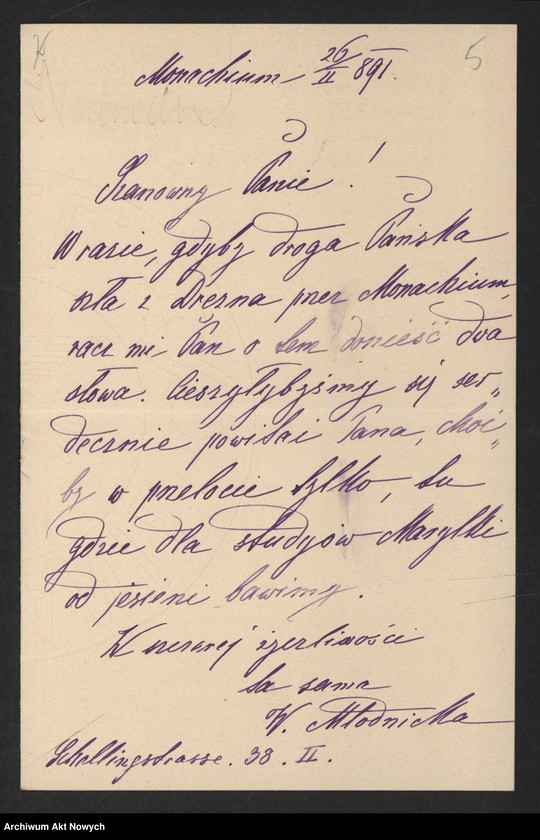 5
Monachium 26/II 891.
Szanowny Panie!
W razie, gdyby droga Pańska
szła z Drezna przez Monachium,
racz mi Pan o tem donieść dwa
słowa. Cieszyłybyśmy się ser„
decznie powitać Pana, choć„
by w przelocie tylko, tu
gdzie dla studyów Marylki
od jesieni bawimy.
W szczerej życzliwości
ta sama
W. Młodnicka
Schellingstrasse. 38. II.
Archiwum Akt Nowych